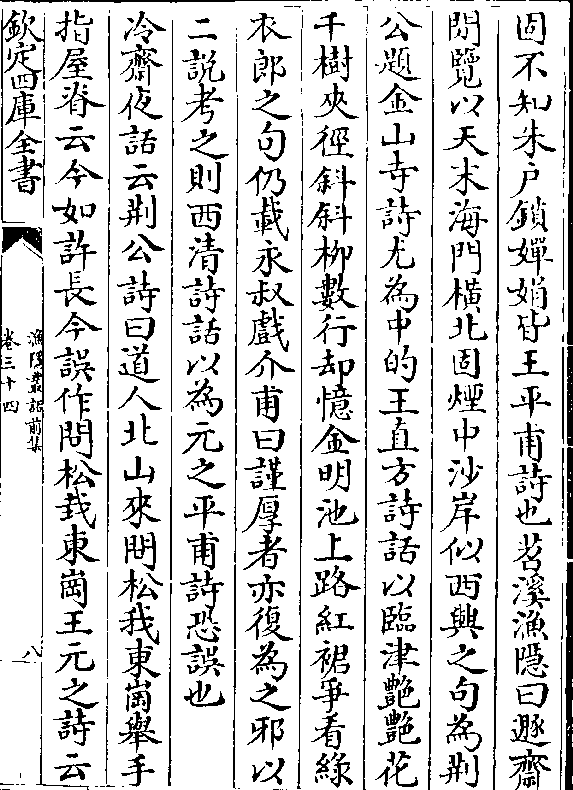 固不知朱户鎖嬋娟皆王平甫詩也苕溪漁隱曰遯齋
閒覽以天末海門橫北固煙中沙岸似西興之句為荆
公題金山寺詩尤為中的王直方詩話以臨津艷艷花
千樹夾徑斜斜柳數行却憶金明池上路紅裙爭看綠
衣郎之句仍載永叔戲介甫曰謹厚者亦復為之邪以
二説考之則西清詩話以為元之平甫詩恐誤也
冷齋夜話云荆公詩曰道人北山來問松我東崗舉手
指屋脊云今如許長今誤作問松栽東崗王元之詩云
欽定四庫全書
漁隱叢話前集
卷三十四
八